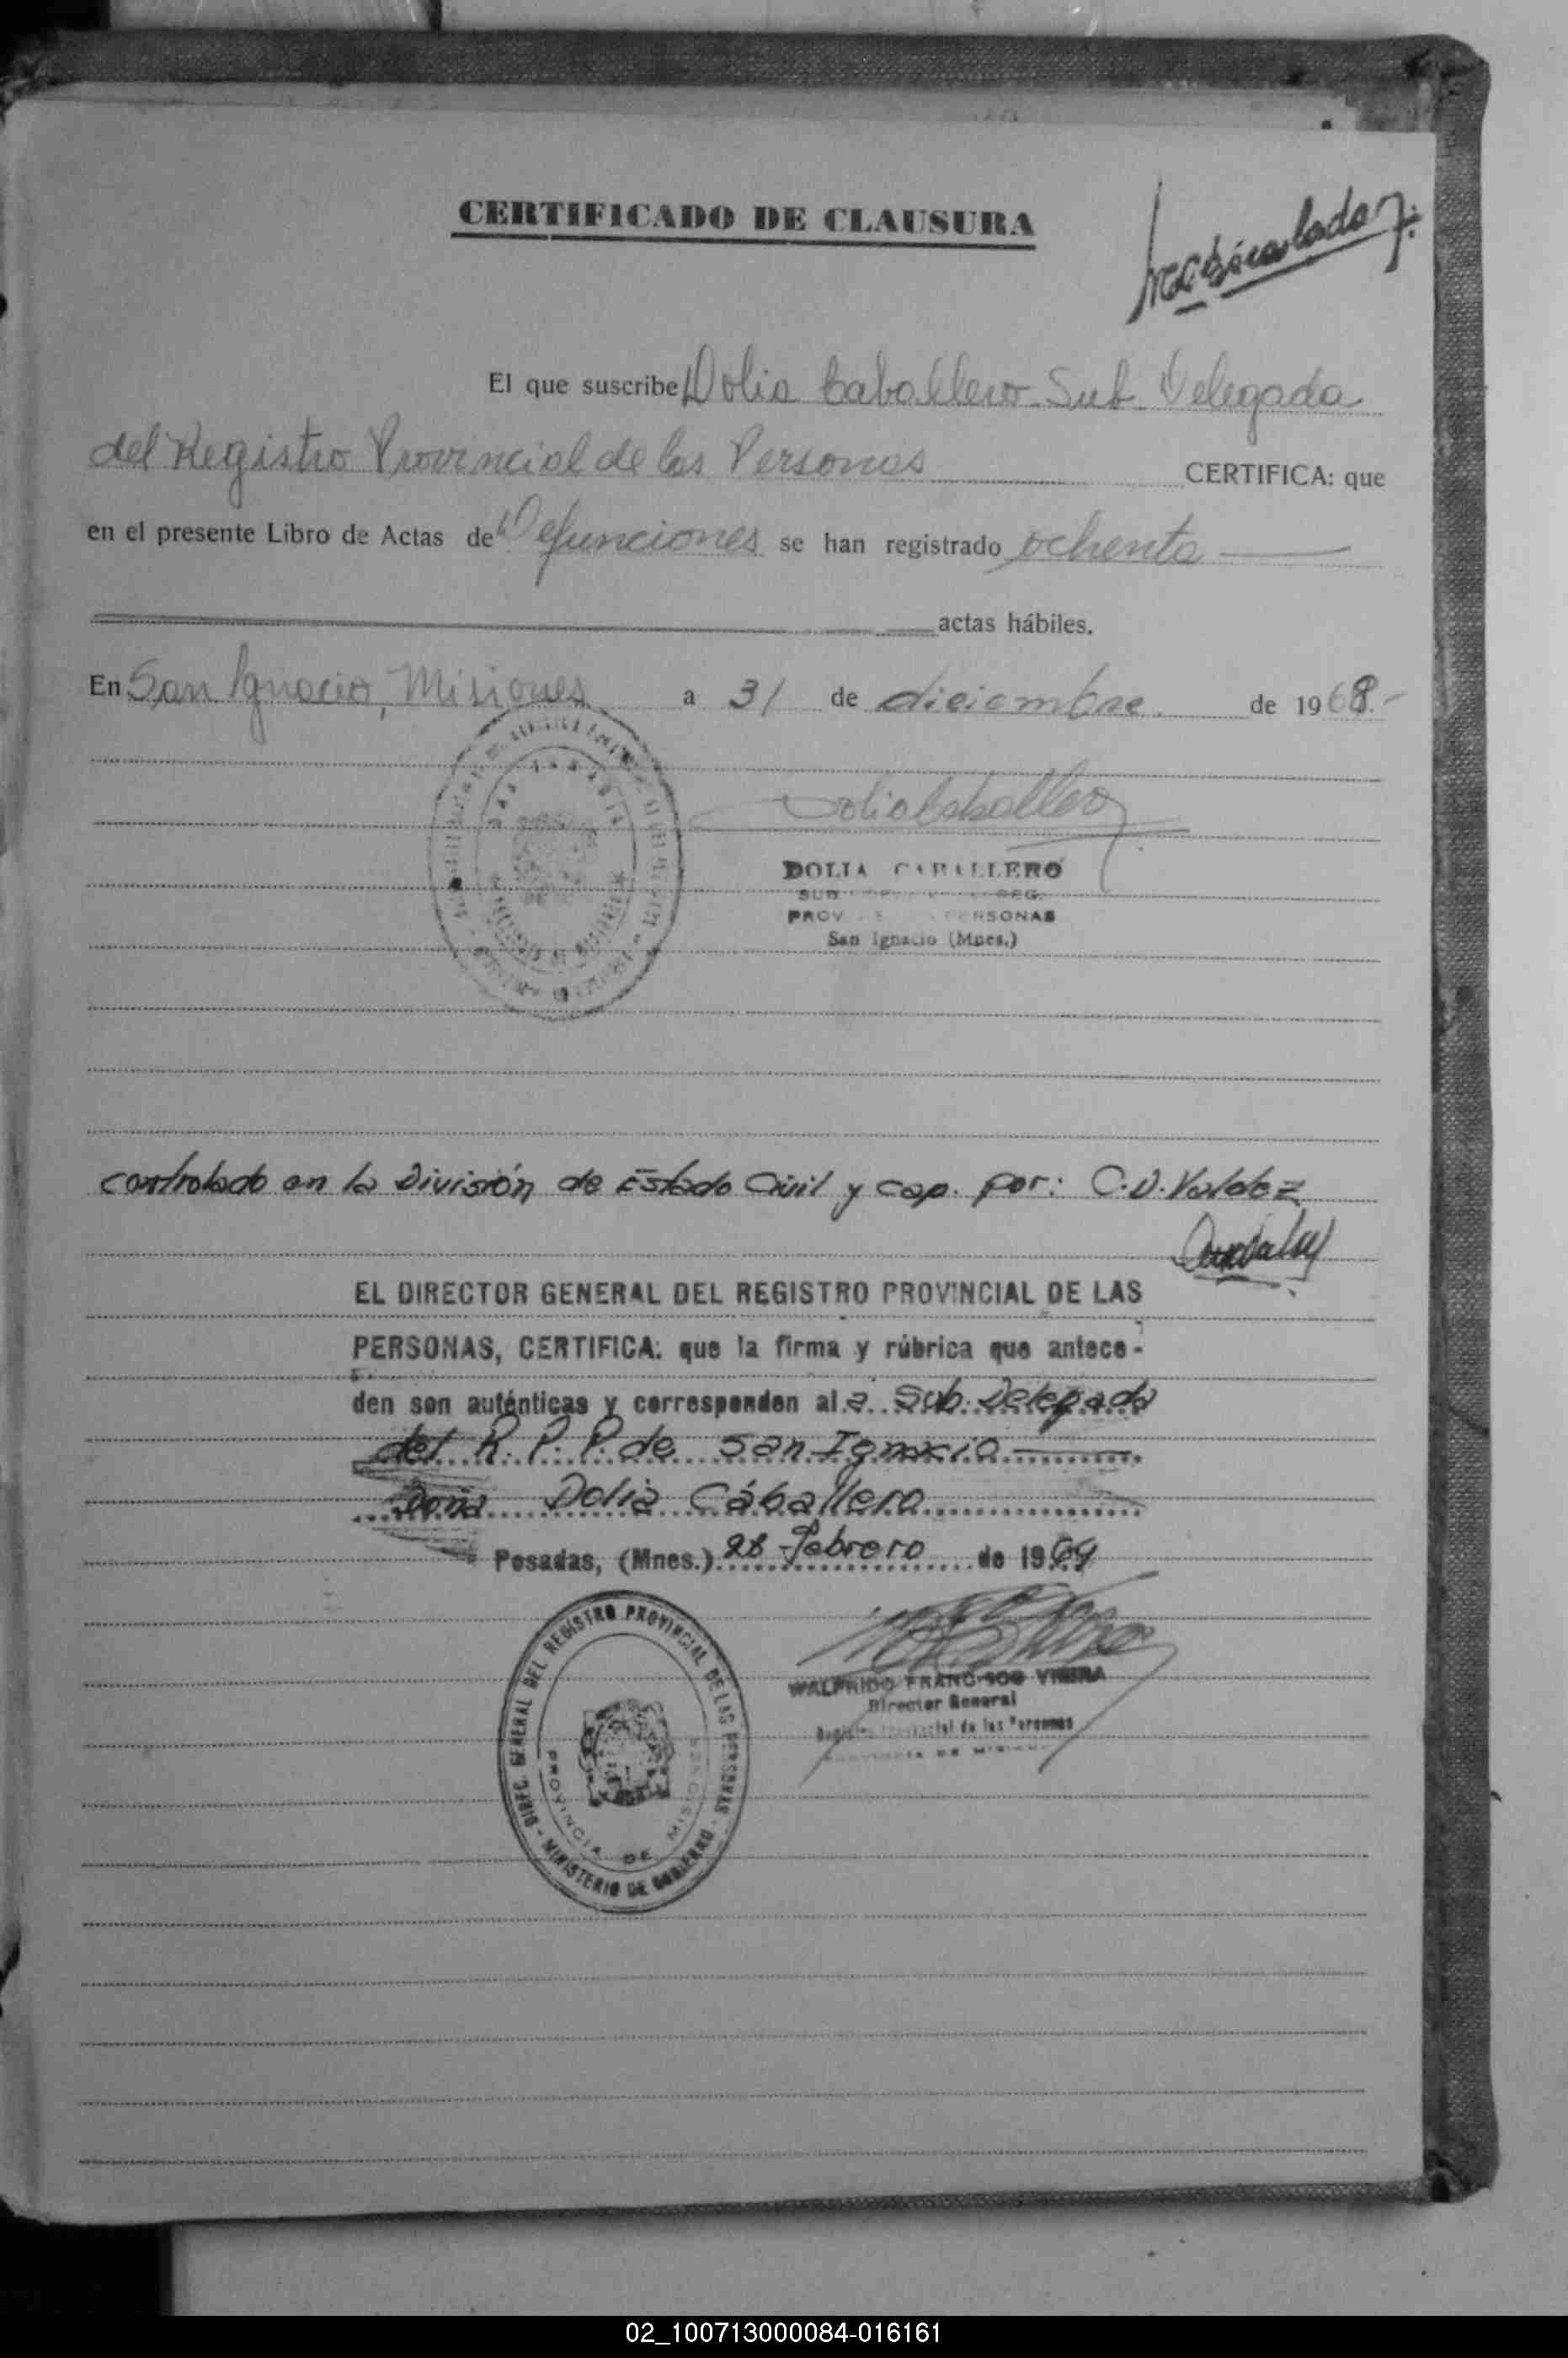 CERTIFICADO DE CLAUSURA
El que suscribe Dolia Caballero Sub Delegada
del Registro Provincial de las Personas CERTIFICA: que
en el presente Libro de Actas de Defunciones se han registrado ochenta
actas hábiles.
En San Ignacio, Misiones a 31 de diciembre de 1968.-
Dolia Caballero
DOLIA CABALLERO
SUB REG.
PROV PERSONAS
San Ignacio (Mnes.)
controlado en la División de Estado Civil y Cap. por: C.D. Valdez
EL DIRECTOR GENERAL DEL REGISTRO PROVINCIAL DE LAS
PERSONAS, CERTIFICA: que la firma y rúbrica que antece-
den son auténticas y corresponden al a Sub. Delegada
del R. P. P. de San Ignacio
Doña Dolia Cáballero
Posadas, (Mnes.) 28 Febrero de 1969
DIREC. GENERAL DEL REGISTRO PROVINCIAL DE LAS PERSONAS - MINISTERIO DE GOBIERNO -
PROVINCIA DE MISIONES
WALFRIDO FRANCISCO VIEIRA
Director General
Registro Provincial de las Personas
02_100713000084-016161